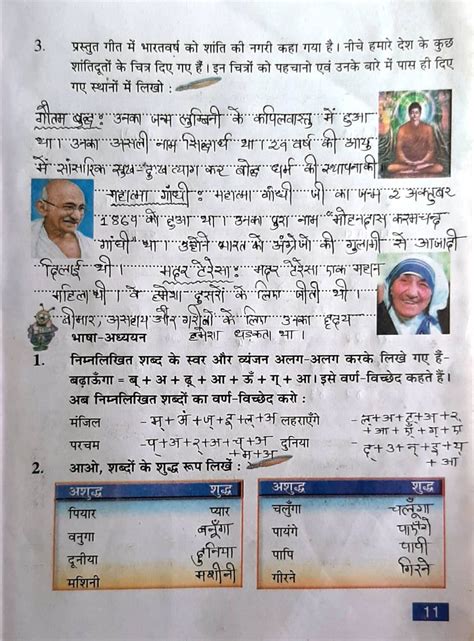 3. प्रस्तुत गीत में भारतवर्ष को शांति की नगरी कहा गया है। नीचे हमारे देश के कुछ
शांतिदूतों के चित्र दिए गए हैं। इन चित्रों को पहचानो एवं उनके बारे में पास ही दिए
गए स्थानों में लिखो :
गौतम बुद्ध : उनका जन्म लुम्बिनी के कपिलवास्तु में हुआ
था। उनका असली नाम सिद्धार्थ था। 29 वर्ष की आयु
में सांसारिक सुख-दुख त्याग कर बौद्ध धर्म की स्थापना की
महात्मा गाँधी : महात्मा गाँधी जी का जन्म 2 अक्टुबर
1869 को हुआ था। उनका पुरा नाम "मोहनदास करमचन्द्र
गांधी" था। उन्होंने भारत को अंग्रेजो की गुलामी से आजादी
दिलाई थी। मदर टेरेसा : मदर टेरेसा एक महान
महिला थी। वे हमेशा दुसरों के लिए जीती थी।
बीमार, असहाय और गरीबों के लिए उनका हृदय
हमेशा धड़कता था।
भाषा-अध्ययन
1. निम्नलिखित शब्द के स्वर और व्यंजन अलग-अलग करके लिखे गए हैं-
बढ़ाऊँगा = ब् + अ + ढ़् + आ + ऊँ + ग् + आ। इसे वर्ण-विच्छेद कहते हैं।
अब निम्नलिखित शब्दों का वर्ण-विच्छेद करो :
मंजिल - म्+अं+ज्+इ+ल्+अ लहराएँगे - ल्+अ+ह्+अ+र्
+आ+एँ+ग्+ए
परचम - प्+अ+र्+अ+च्+अ दुनिया - द्+उ+न्+इ+य्
+म्+अ +आ
2. आओ, शब्दों के शुद्ध रूप लिखें :
अशुद्ध शुद्ध अशुद्ध शुद्ध
पियार प्यार चलुँगा चलूँगा
वनुगा बनूँगा पायंगे पाएँगे
दूनीया दुनिया पापि पापी
मशिनी मशीनी गीरने गिरने
11